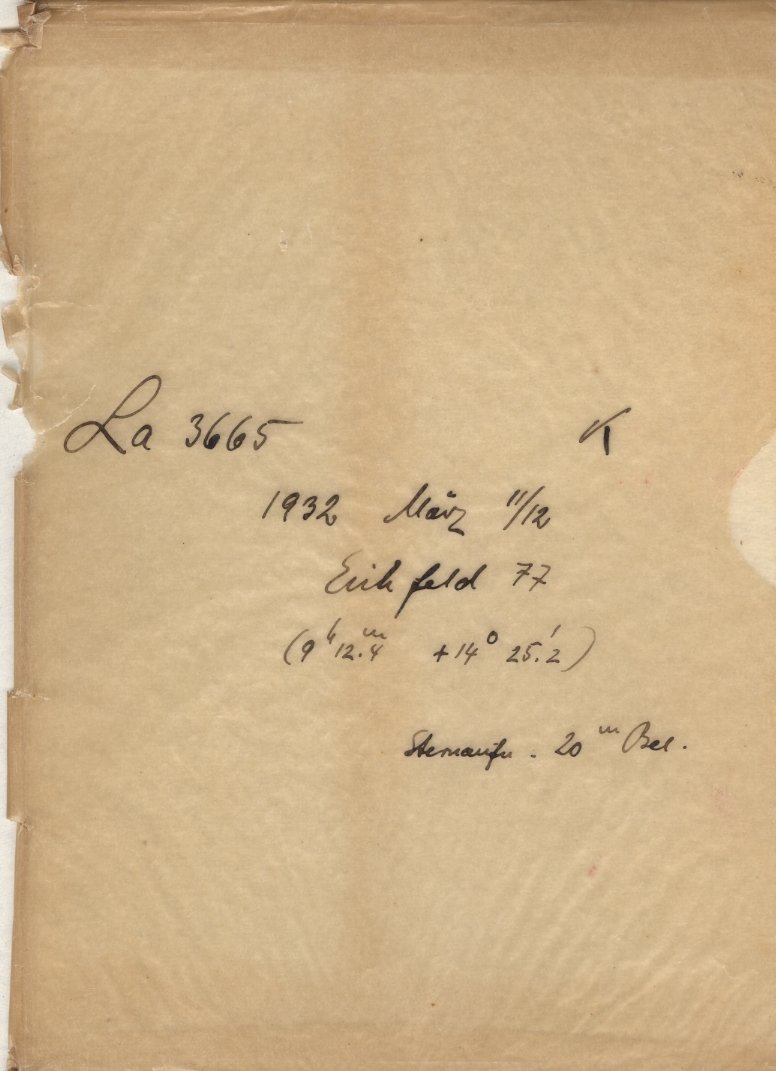 La 3665 K
1932 März 11/12
Erik feld 77
(9ʰ 12.ᵐ4 +14° 25.′2)
Sternaufn. 20ᵐ Bel.